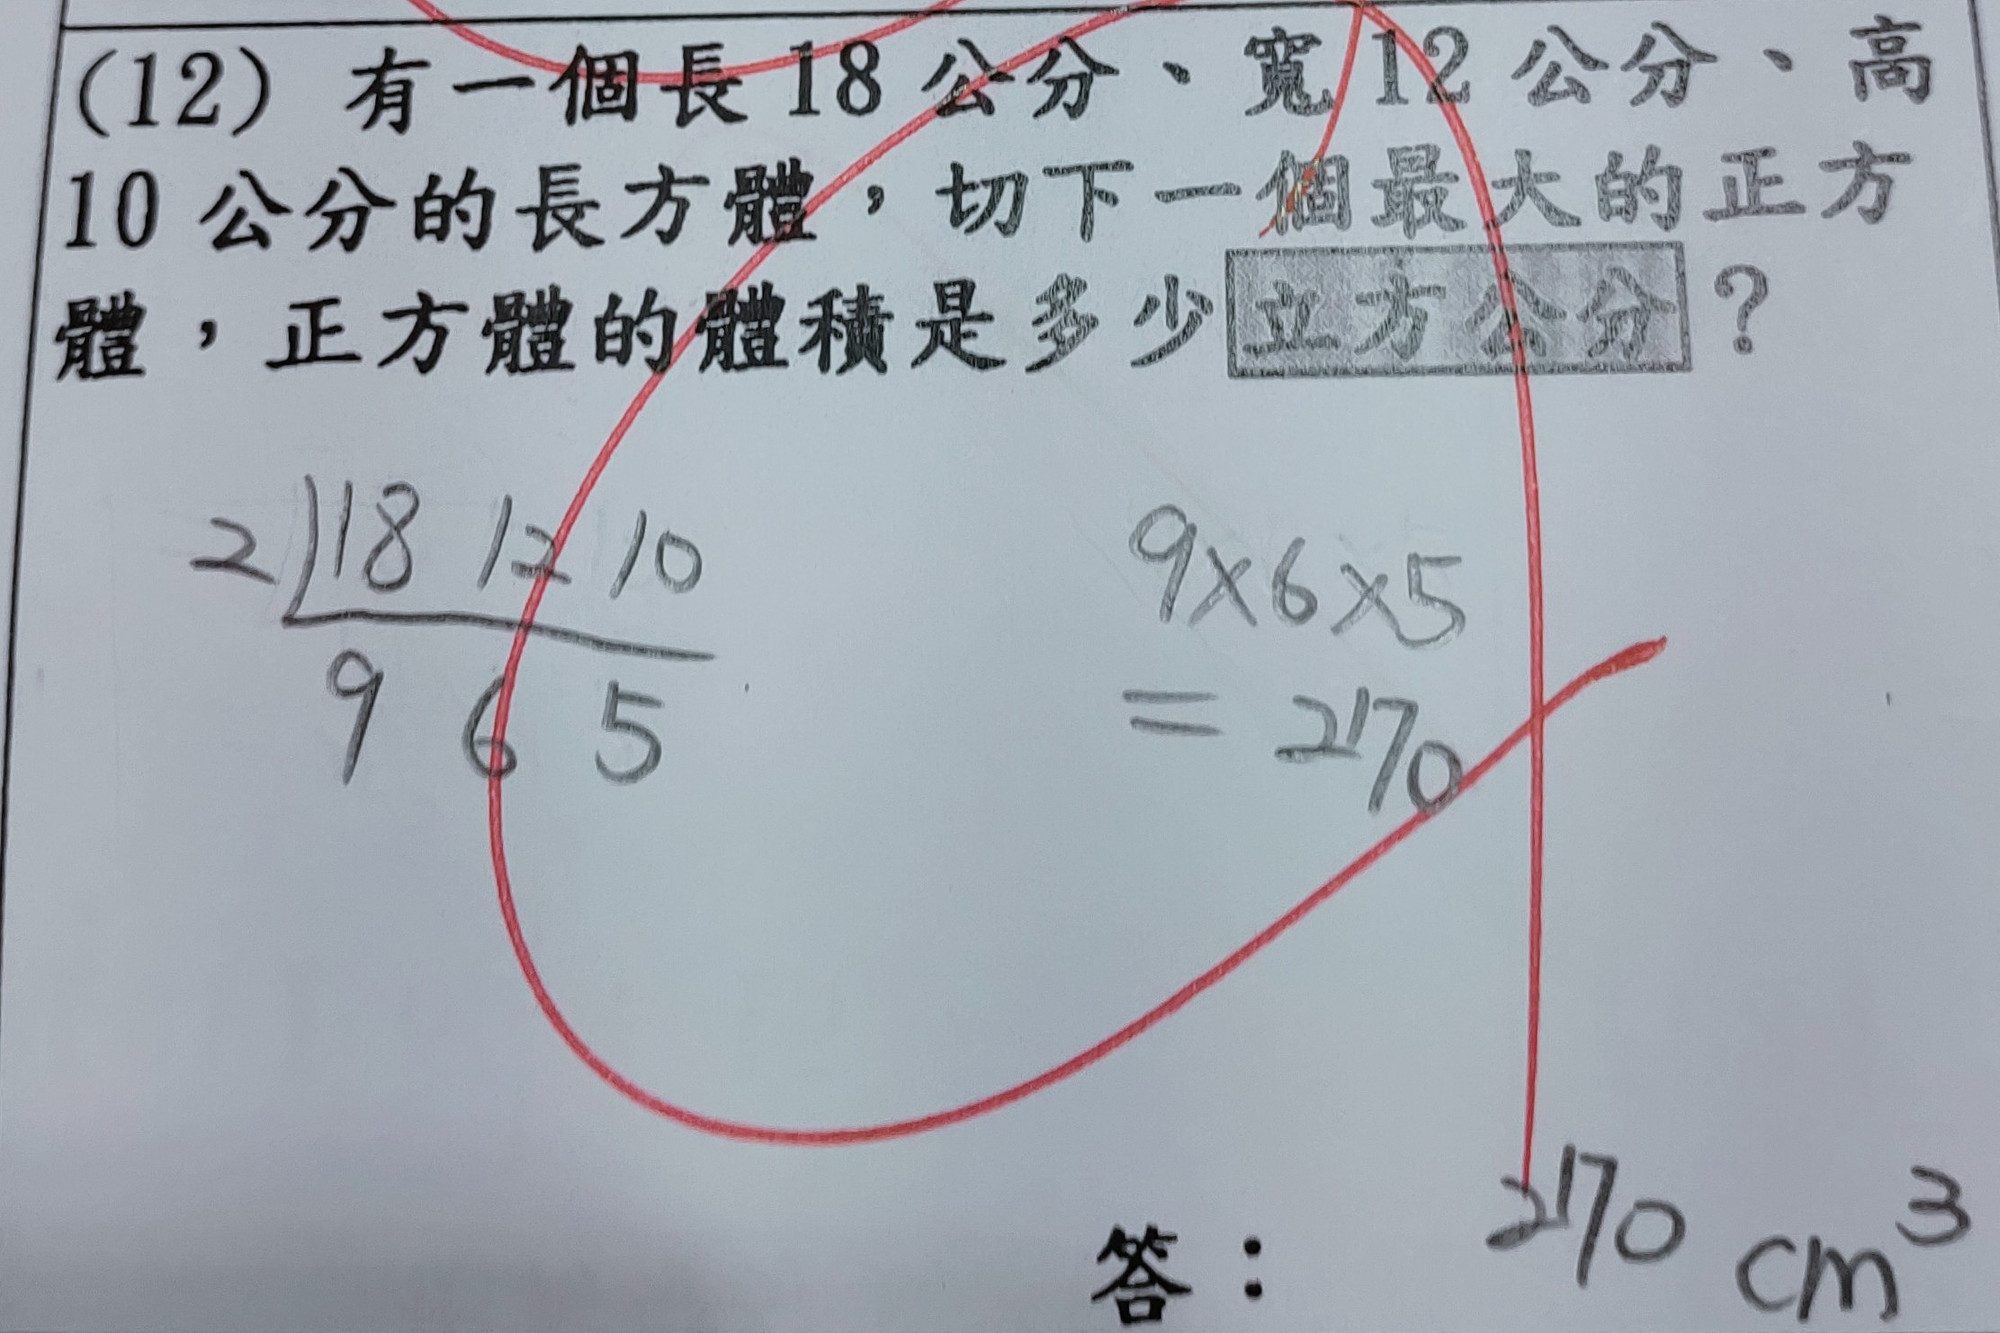 (12) 有一個長 18 公分、寬 12 公分、高
10 公分的長方體，切下一個最大的正方
體，正方體的體積是多少立方公分？
2 18 12 10
9 6 5
9×6×5
= 270
答： 270 cm³